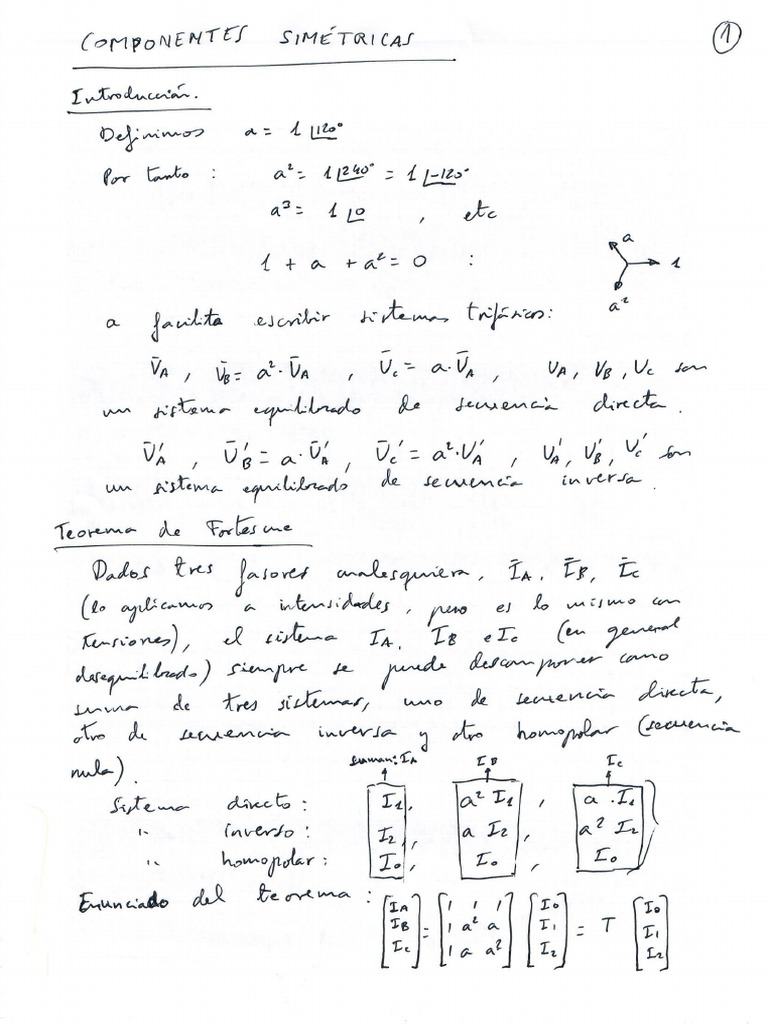 COMPONENTES SIMÉTRICAS
1
Introducción.
Definimos a = 1∠120°
Por tanto : a² = 1∠240° = 1∠-120°
a³ = 1∠0 , etc
1 + a + a² = 0 :
a
1
a²
a facilita escribir sistemas trifásicos:
U̅A , U̅B = a²·U̅A , U̅c = a·U̅A , UA, UB, Uc son
un sistema equilibrado de secuencia directa.
U̅A′ , U̅B′ = a·U̅A′ , U̅c′ = a²·UA′ , UA′, UB′, Uc′ son
un sistema equilibrado de secuencia inversa.
Teorema de Fortescue
Dados tres fasores cualesquiera, I̅A, I̅B, I̅c
(lo aplicamos a intensidades, pero es lo mismo con
tensiones), el sistema IA, IB e Ic (en general
desequilibrado) siempre se puede descomponer como
suma de tres sistemas, uno de secuencia directa,
otro de secuencia inversa y otro homopolar (secuencia
nula).
suman: IA IB Ic
Sistema directo: I1, a² I1, a·I1
" inverso: I2, a I2, a² I2
" homopolar: I0, I0, I0
Enunciado del teorema :
[IA] = [1 1 1] [I0] = T [I0]
[IB] [1 a² a] [I1] [I1]
[Ic] [1 a a²] [I2] [I2]